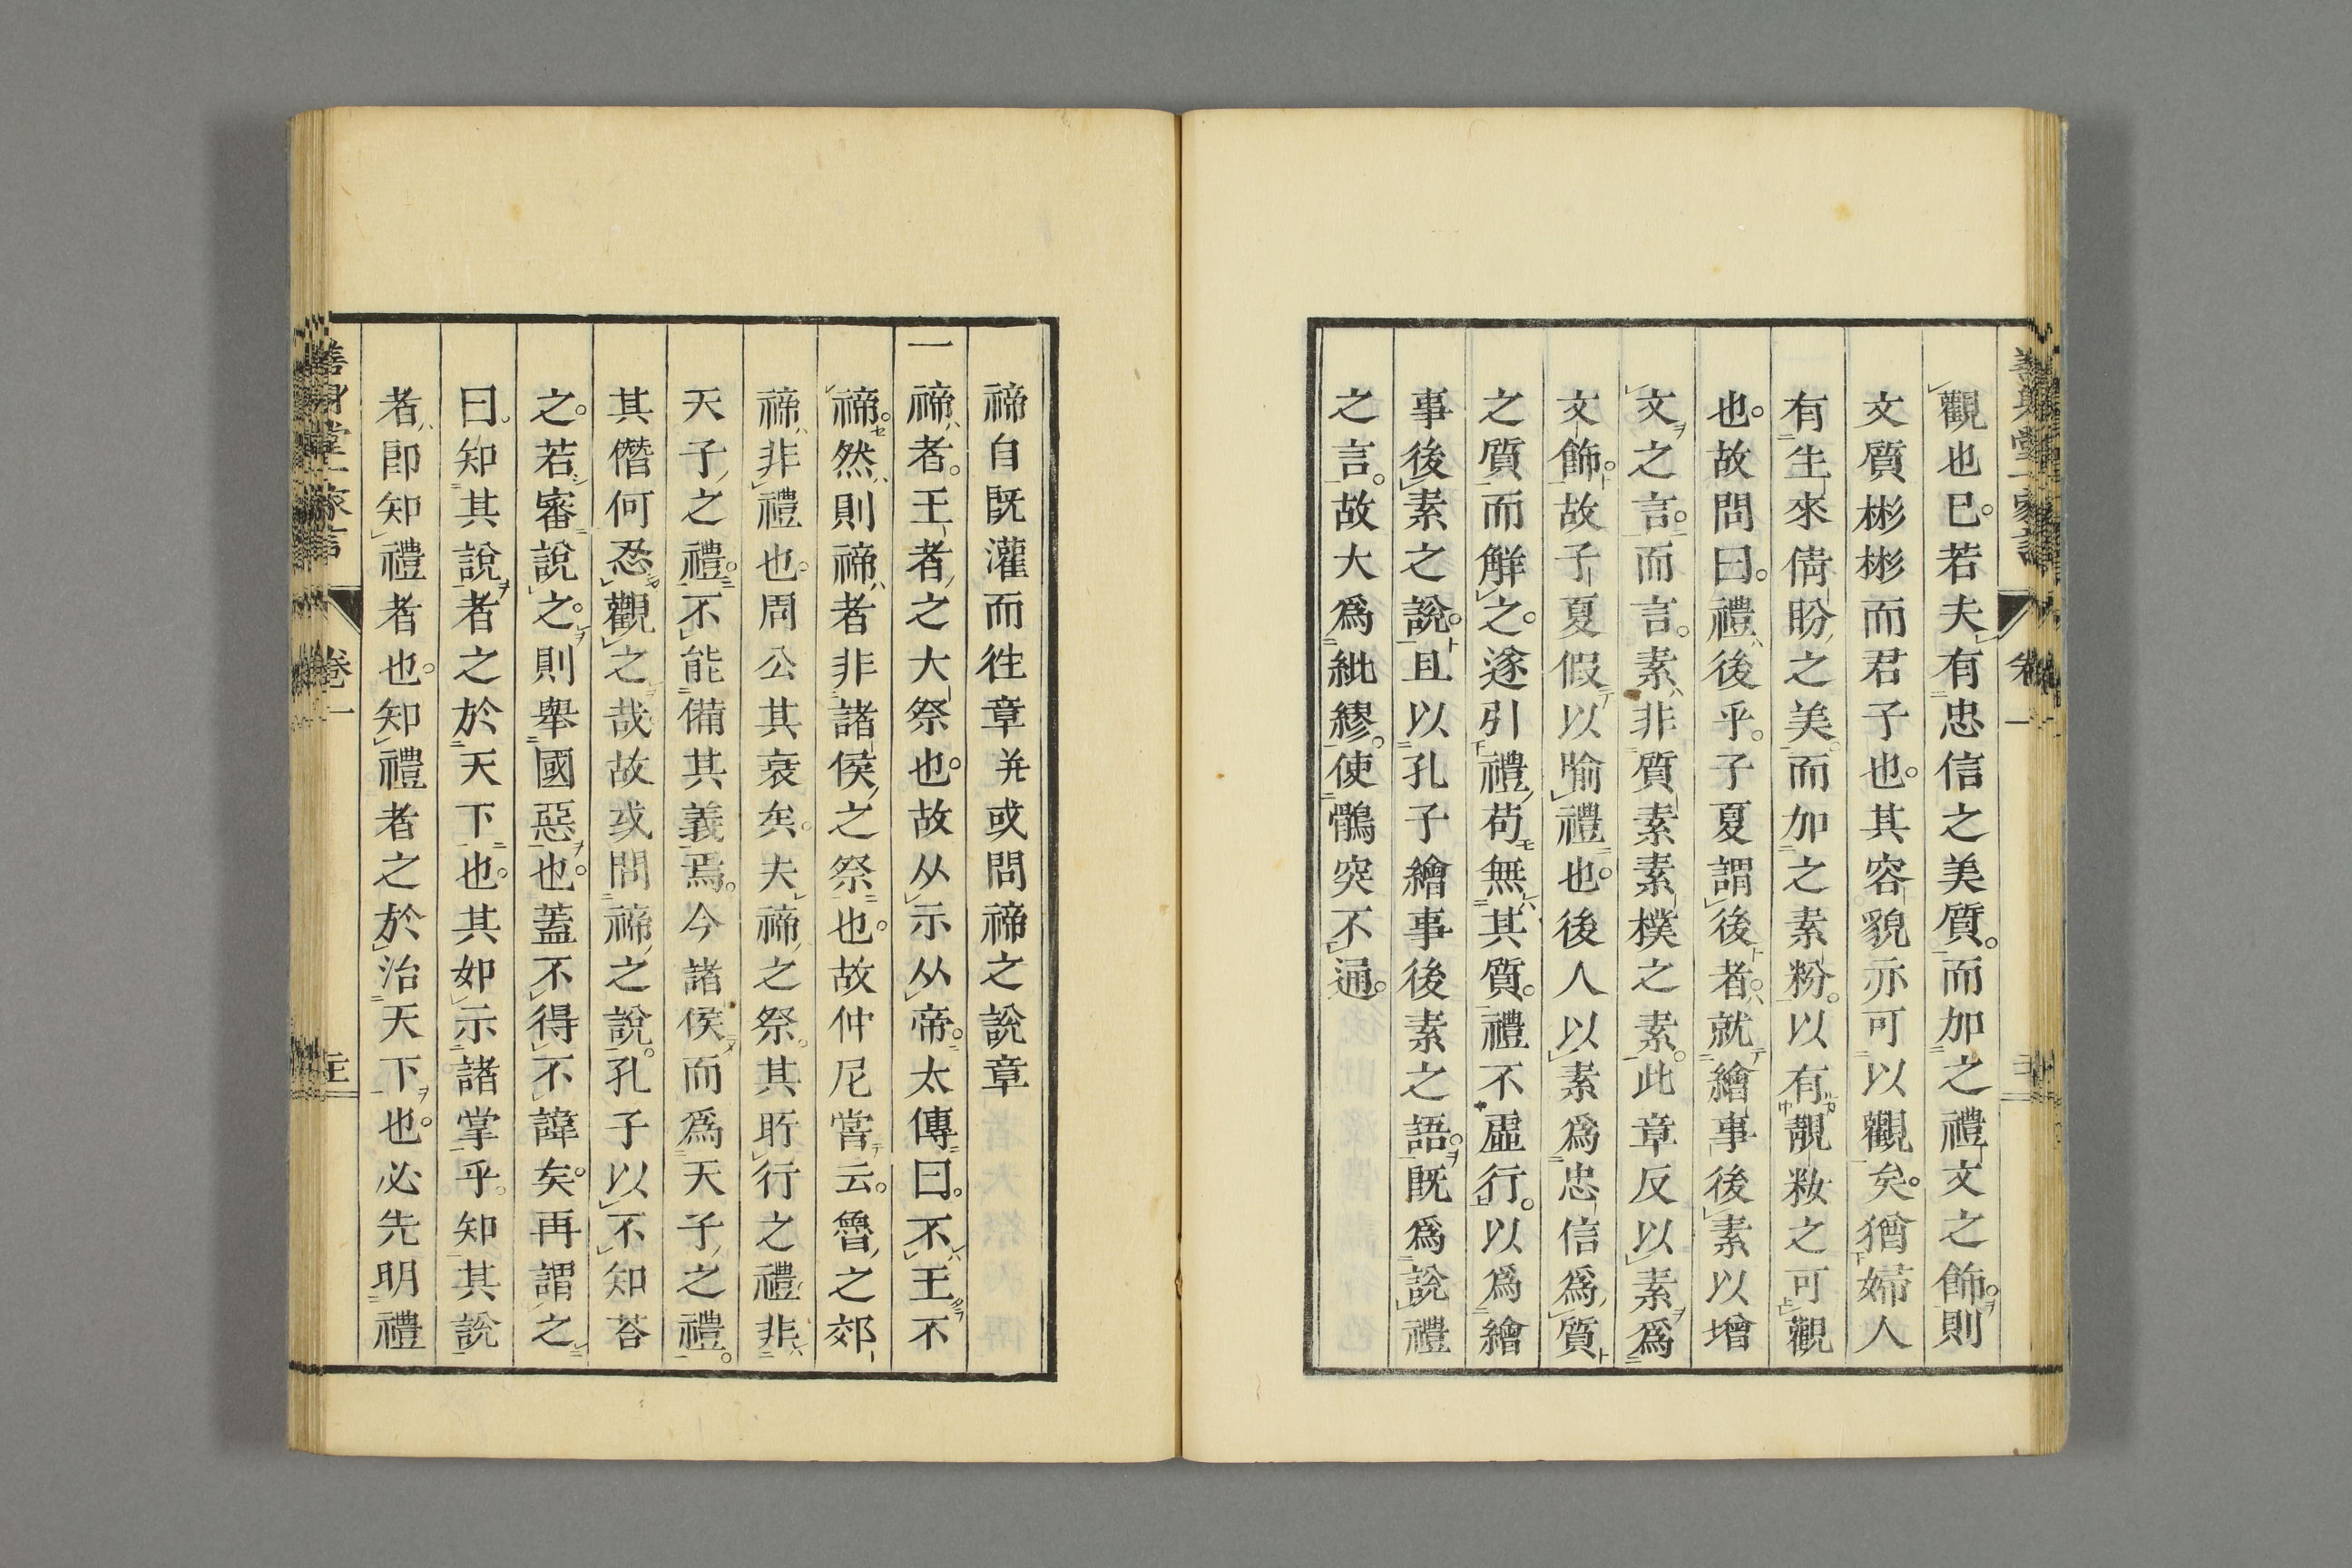 觀也已。若夫有忠信之美質。而加之禮文之飾。則
文質彬彬而君子也。其容貌亦可以觀矣。猶婦人
有生來倩盼之美。而加之素粉。以有靚粧之可觀
也。故問曰。禮後乎。子夏謂後者。就繪事後素以增
文之言。而言。素非質素素樸之素。此章反以素爲
文飾。故子夏假以喩禮也。後人以素爲忠信爲質
之質而解之。遂引禮苟無其質。禮不虛行。以爲繪
事後素之說。且以孔子繪事後素之語。既爲說禮
之言。故大爲紕繆。使鶻突不通。
禘自既灌而往章并或問禘之說章
一禘者。王者之大祭也。故从示从帝。太傳曰。不王不
禘。然則禘者非諸侯之祭也。故仲尼嘗云。魯之郊
禘非禮也。周公其衰矣。夫禘之祭。其所行之禮非
天子之禮。不能備其義焉。今諸侯而爲天子之禮。
其僭何忍觀之哉故或問禘之說。孔子以不知荅
之。若審說之。則舉國惡也。蓋不得不諱矣。再謂之
曰。知其說者之於天下也。其如示諸掌乎。知其說
者卽知禮者也。知禮者之於治天下也。必先明禮
卷一